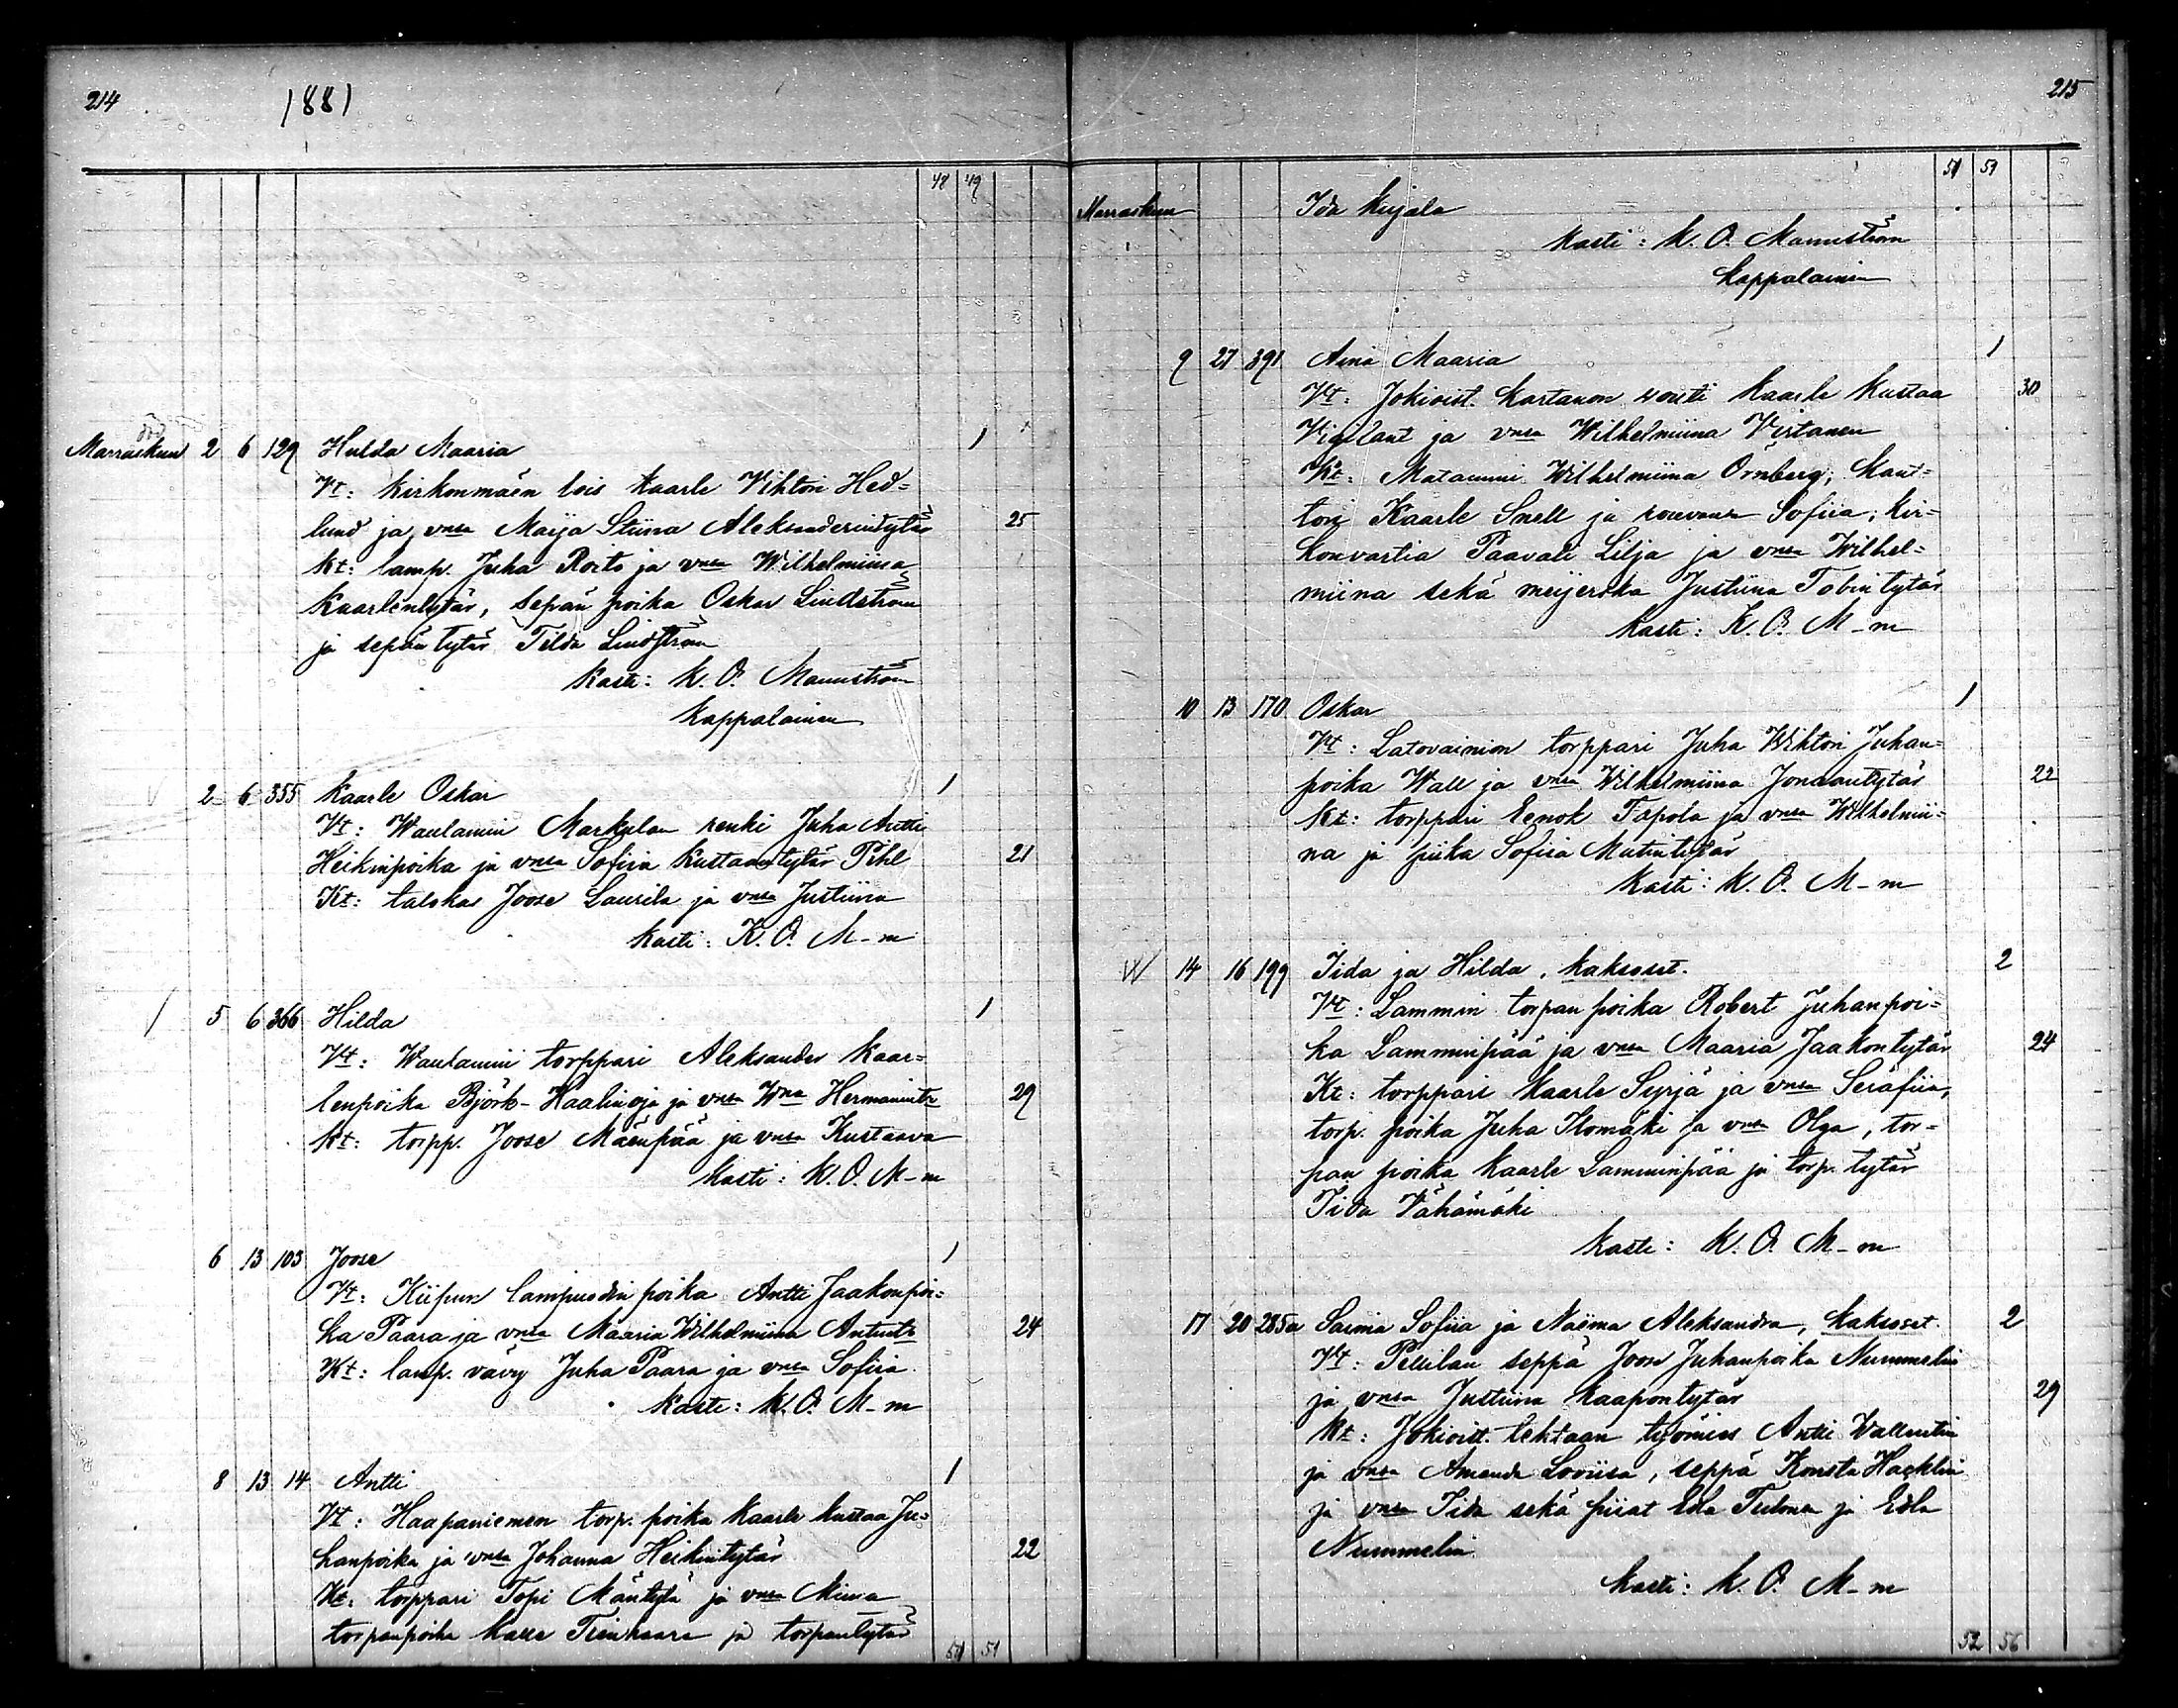 214 1881
48 49
Marraskun 2 6 129 Hulda Maaria 1
Vt: Kirkonmäen lois Kaarle Vihtori Hed=
lund ja vnsa Maija Stiina Aleksanderintytär 25
Kt: lamp. Juha Rosto ja vnsa Wilhelmiina
Kaarlentytär, sepän poika Oskar Lindström
ja sepän tytär Tilda Lindström
Kasti: K. O. Mannström
Kappalainen
2 6 355 Kaarle Oskar 1
Vt: Waulamin Markulan renki Juha Antti
Heikinpoika ja vnsa Sofiia Kustaantytär Pihl 21
Kt: talokas Joose Laurila ja vnsa Justiina
Kasti: K. O. M-m
5 6 366 Hilda 1
Vt: Waulamin torppari Aleksander Kaar=
lenpoika Björk-Haalinoja ja vnsa Wna Hermannintr 29
Kt: torpp. Joose Mäenpää ja vnsa Kustaava
Kasti: K. O. M-m
6 13 103 Joose 1
Vt: Kiipun lampuodin poika Antti Jaakonpoi=
ka Paara ja vnsa Maaria Wilhelmiina Antintr 24
Kt: lamp. vävy Juha Paara ja vnsa Sofiia
Kasti: K. O. M-m
8 13 14 Antti 1
Vt: Haapaniemen torp. poika Kaarle Kustaa Ju=
hanpoika ja vnsa Johanna Heikintytär 22
Kt: torppari Topi Mäntylä ja vnsa Miina
torpanpoika Kalle Tienhaara ja torpantytär
50 51
215
50 51
Marraskun Ida Kujala
Kasti: K. O. Mannström
Kappalainen
9 27 391 Aina Maaria 1
Vt: Jokioist. Kartanon vouti Kaarle Kustaa 30
Vigilant ja vnsa Wilhelmiina Virtanen
Kt: Matammi Wilhelmiina Örnberg, Kant=
tori Kaarle Snell ja rouvansa Sofiia, kir=
konvartia Paavali Lilja ja vnsa Wilhel=
miina sekä meijerska Justiina Tobintytär
Kasti: K. O. M-m
10 13 170 Oskar 1
Vt: Latovainion torppari Juha Wihtori Juhan=
poika Wall ja vnsa Wilhelmiina Joonaantytär 22
Kt: torppari Eenok Tapola ja vnsa Wilhelmii=
na ja piika Sofiia Matintytär
Kasti: K. O. M-m
14 16 199 Iida ja Hilda, kaksoset. 2
Vt: Lammin torpan poika Robert Juhanpoi=
ka Lamminpää ja vnsa Maaria Jaakontytär 24
Kt: torppari Kaarle Syrjä ja vnsa Serafiia,
torp. poika Juha Ilomäki ja vnsa Olga, tor=
pan poika Kaarle Lamminpää ja torp. tytär
Iida Vähämäki
Kasti: K. O. M-m
17 20 285a Saima Sofiia ja Naëma Aleksandra, kaksoset. 2
Vt: Pellilän seppä Joose Juhanpoika Nummelin
ja vnsa Justiina Kaapontytär 29
Kt: Jokioist. tehtaan työmies Antti Wallentin
ja vnsa Amanda Loviisa, seppä Konsta Hacklin
ja vnsa Iida sekä piiat Edla Tulonen ja Edla
Nummelin
Kasti: K. O. M-m
52 56